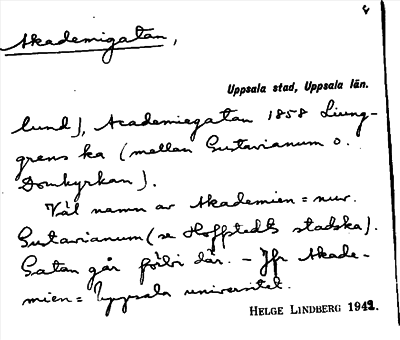 Akademigatan,
Uppsala stad, Uppsala län.
lund), Academiegatan 1858 Liung-
grens ka (mellan Gustavianum o.
Domkyrkan).
Väl namn av Akademien = nuv.
Gustavianum (se Hoffstedts stadska).
Gatan går förbi där. – Jfr Akade-
mien = Uppsala universitet.
HELGE LINDBERG 1942.